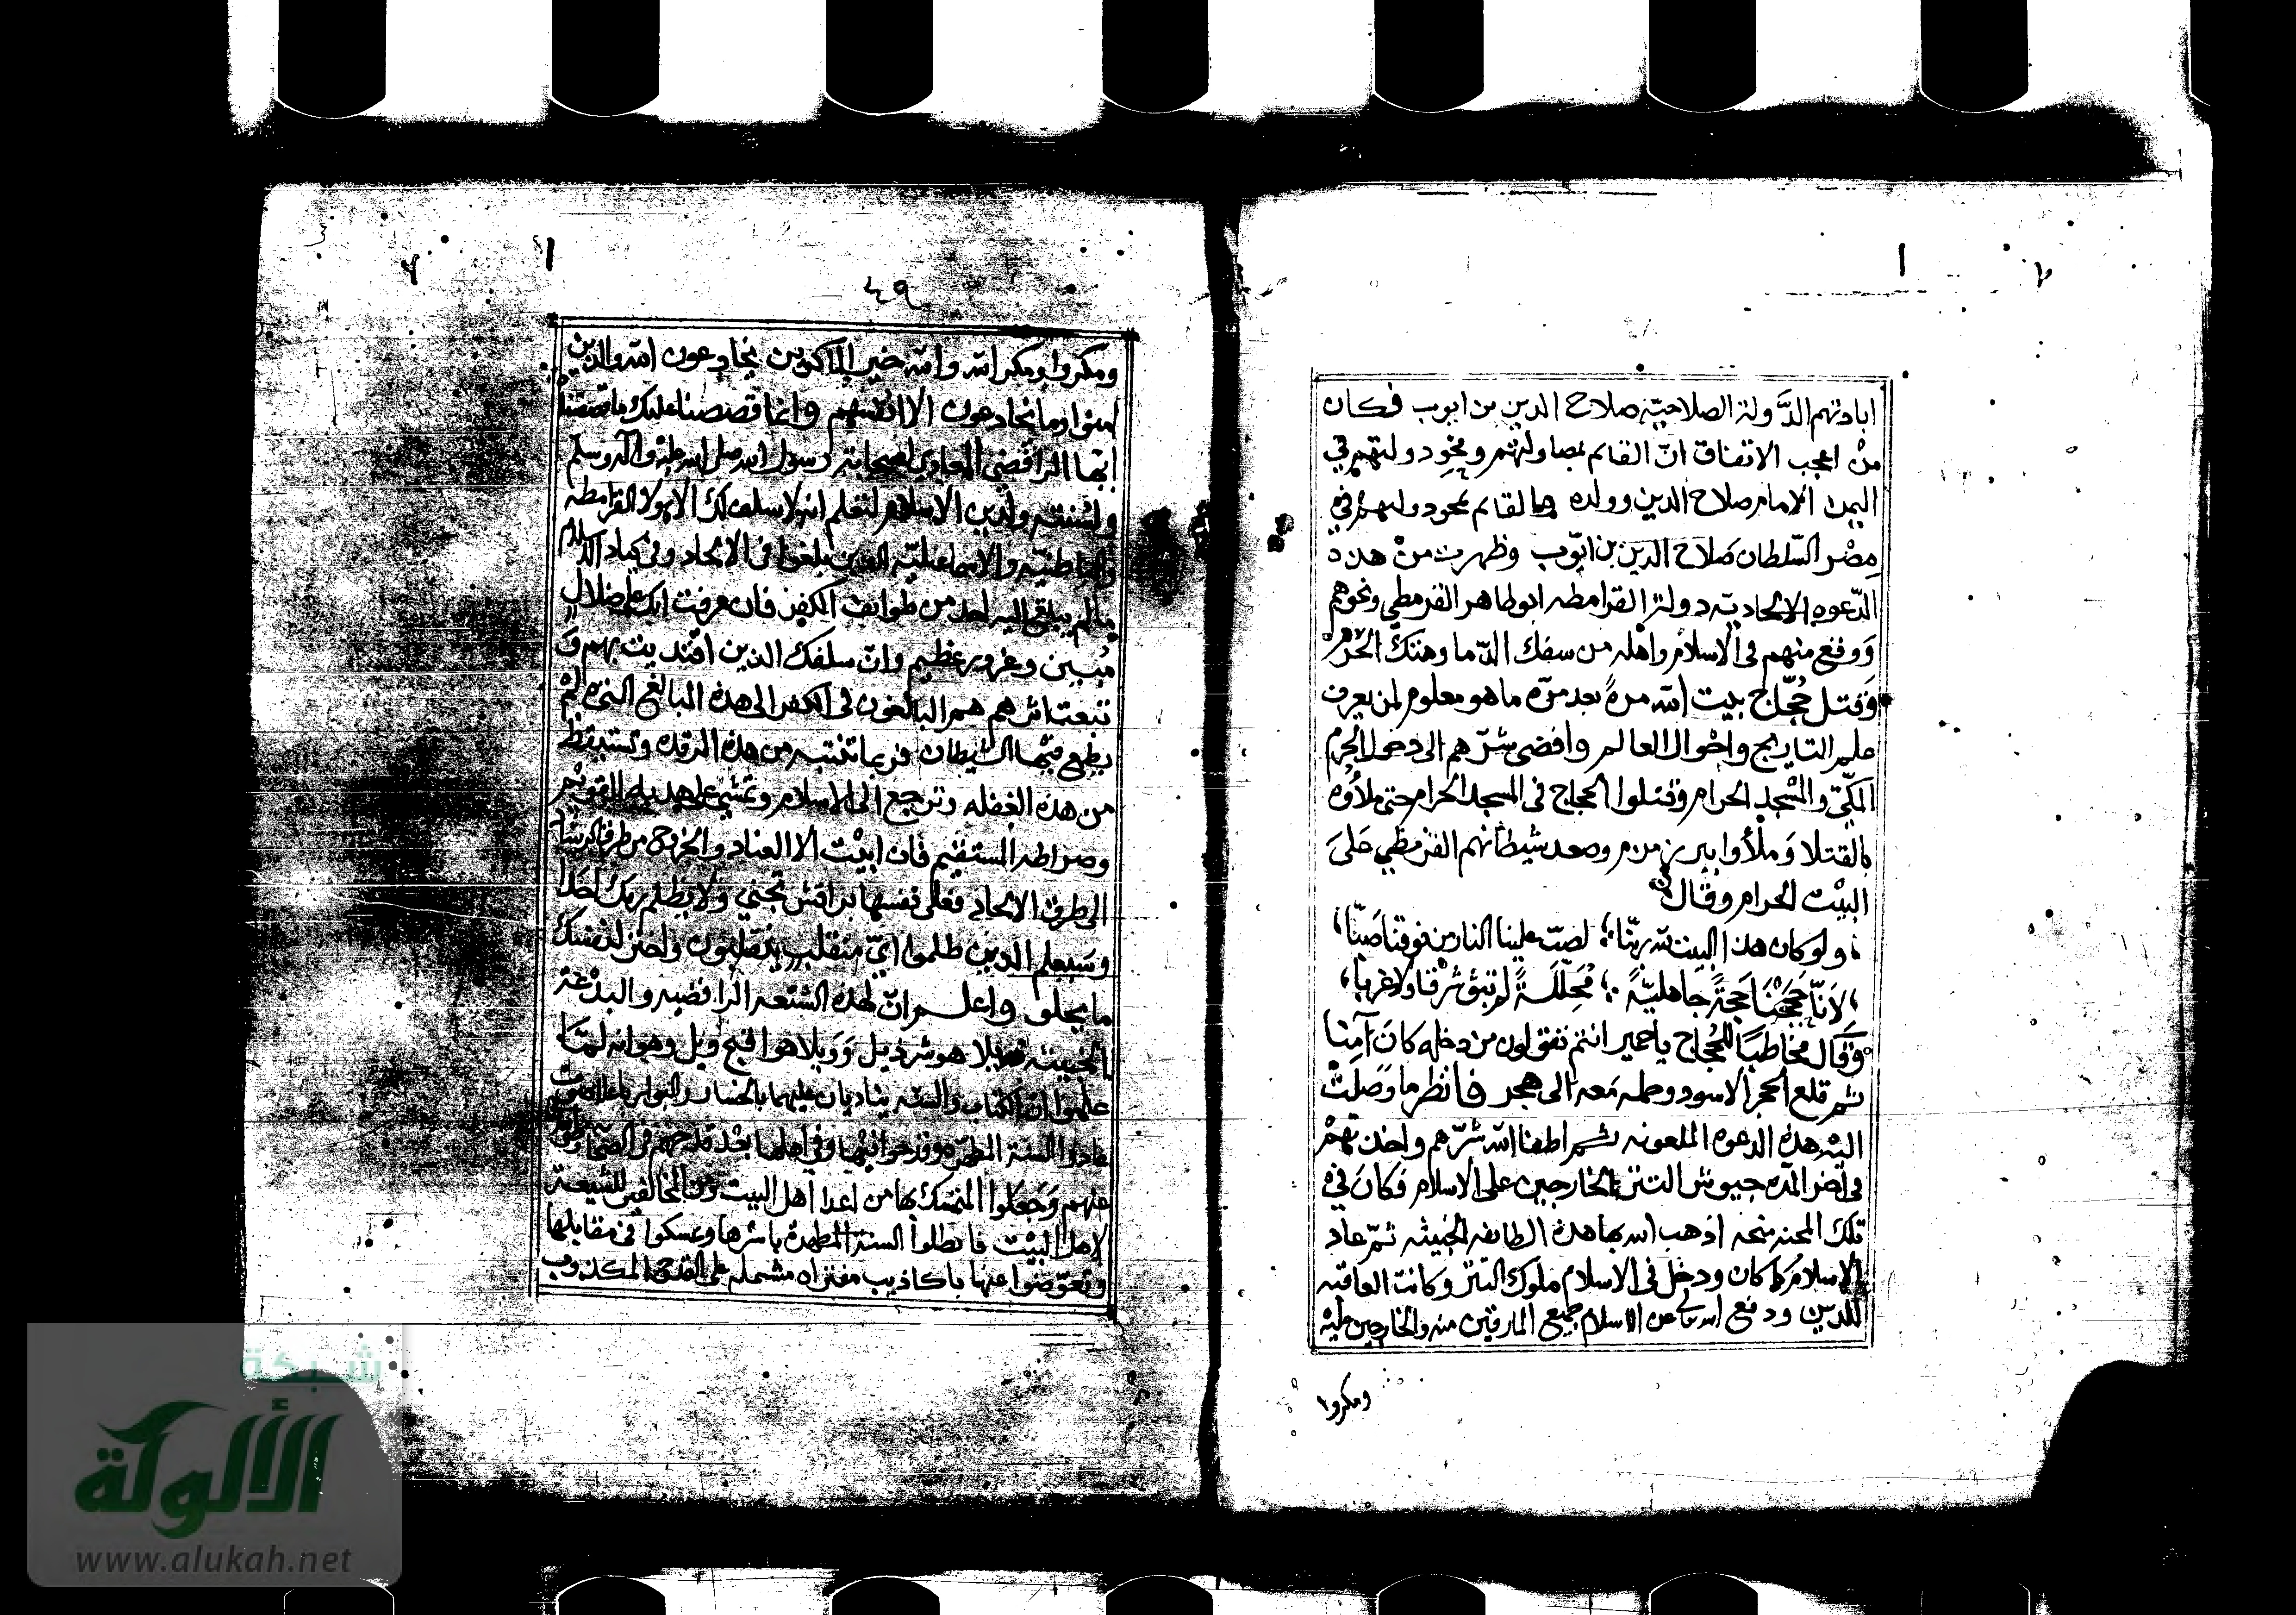 ابادتهم الدَّولة الصلاحيّه صلاح الدين بن ايوب فكان
منْ اعجب الاتفاق انّ القائم بمصاولتهم ومحود ولتهم في
اليمن الامام صلاح الدين وولده كما القائم بمحود ولتهم في
مصْر السّلطان صَلاح الدين بن ايّوب وظهرت منْ هذه
الدّعوه الالحاديّه دولة القرامطه ابو طاهر القرمطي ونحوهم
وَوقع منهم في الاسلام واهْله من سفك الدّما وهتك الحُرم
وَقتل حُجّاج بيت الله مرةً بعد مرّه ما هو معلوم لمن يعرف
علم التاريخ واحْوال العالم وافضى شرّهم الى دخول الحرم
المكّيّ والمسْجد الحرام وقتلوا الحجاج في المسجد الحرام حتى ملأوه
بالقتلا وَملأوا بير زمزم وصعد شيطانهم القرمطي عَلىَ
البيْت الحرام وقال
ولو كان هذا البيت لله ربّنا ؛ لصبّ علينا النار من فوقنا صَبّا
لاَنّا حَجَجْنا حَجةً جاهليّةً ؛ مُحلّلَةً لم تبق شرْقا ولا غربا
وَقال مخاطبًا للحُجاج يا حمير انتم تقولون من دخله كانَ آمِنا
ثم قلع الحجر الاسود وحمله مَعه الى هجر فانظر ما وَصلَتْ
اليْه هذه الدعوه الملعونه ثم اطفا الله شرّهم واخذتهمْ
في اخر المدّه جيوش التتر الخارجين على الاسلام فكانَ في
تلك المحنه منحه اذهب الله بها هذه الطايفه الخبيثه ثمّ عاد
الاسلامُ كما كان ودخل في الاسلام ملوك التتر وكانت العاقبه
للدين ودفع الله تعالى عن الاسلام جميع المارقين منه والخارجين عليْه
ومكروا
٤٩
ومكروا ومكر الله والله خير الماكرين يخادعون الله والذين
امنوا وما يخادعون الا انفسهم وانما قصصنا عليك ما قصصنا
ايّها الرافضي المعادي لصحابة رسول الله صلى الله عليه واله وسلم
ولسُنته ولدين الاسلام لتعلم انه لا سلف لك الا هولاء القرامطه
والباطنيّه والاسماعيليّه الذين بلغوا في الالحاد وفي كياد الاسلام
ما لم يبلغ اليه احد من طوايف الكفر فان عرفت انك على ضلال
مُبين وغرور عظيم وانّ سلفك الذين اقتديت بهم وَ
تبعت اثرهم هم البالغون في الكفر الى هذه المبالغ التى لمْ
يطمع فيْها الشيطان فربما تنتبه من هذه الرقده وتستيقظ
من هذه الغفله وترجع الى الاسلام وتمشي على هديه القويْم
وصراطه المستقيم فان ابيْت الا العناد والخروج من
الى طرق الالحاد فعلى نفسها براقش تجني ولا يظلم ربك احَدا
وسَيعلم الذين ظلموا ايّ منقلب ينقلبون واختر لنفسك
ما يحلو واعلم انّ لهذه الشنعه الرافضيه والبدْعة
الخبيثه ذيلا هو شر ذيل وَوَيلا هو اقبح ويل وهو انه لمّا
علموا انّ الكتاب والسنّه يناديان عليهما بالخسار والبوار
عادوا السنة المطهّره وقدحوا فيْها وفي اهلها بعْد قدحهم في الصّحابه
عنهم وَجعَلوا المتمسّك بها من اعدا اهل البيت ومن المخالفين للشيعة
لاهل البيْت فابطلوا السنّة المطهرة باسْرها وتمسكوا في مقابلها
وتعوّضوا عنها باكاذيب مفتراه مشتمله على القدح المكذوب
شبكة
الألوكة
www.alukah.net